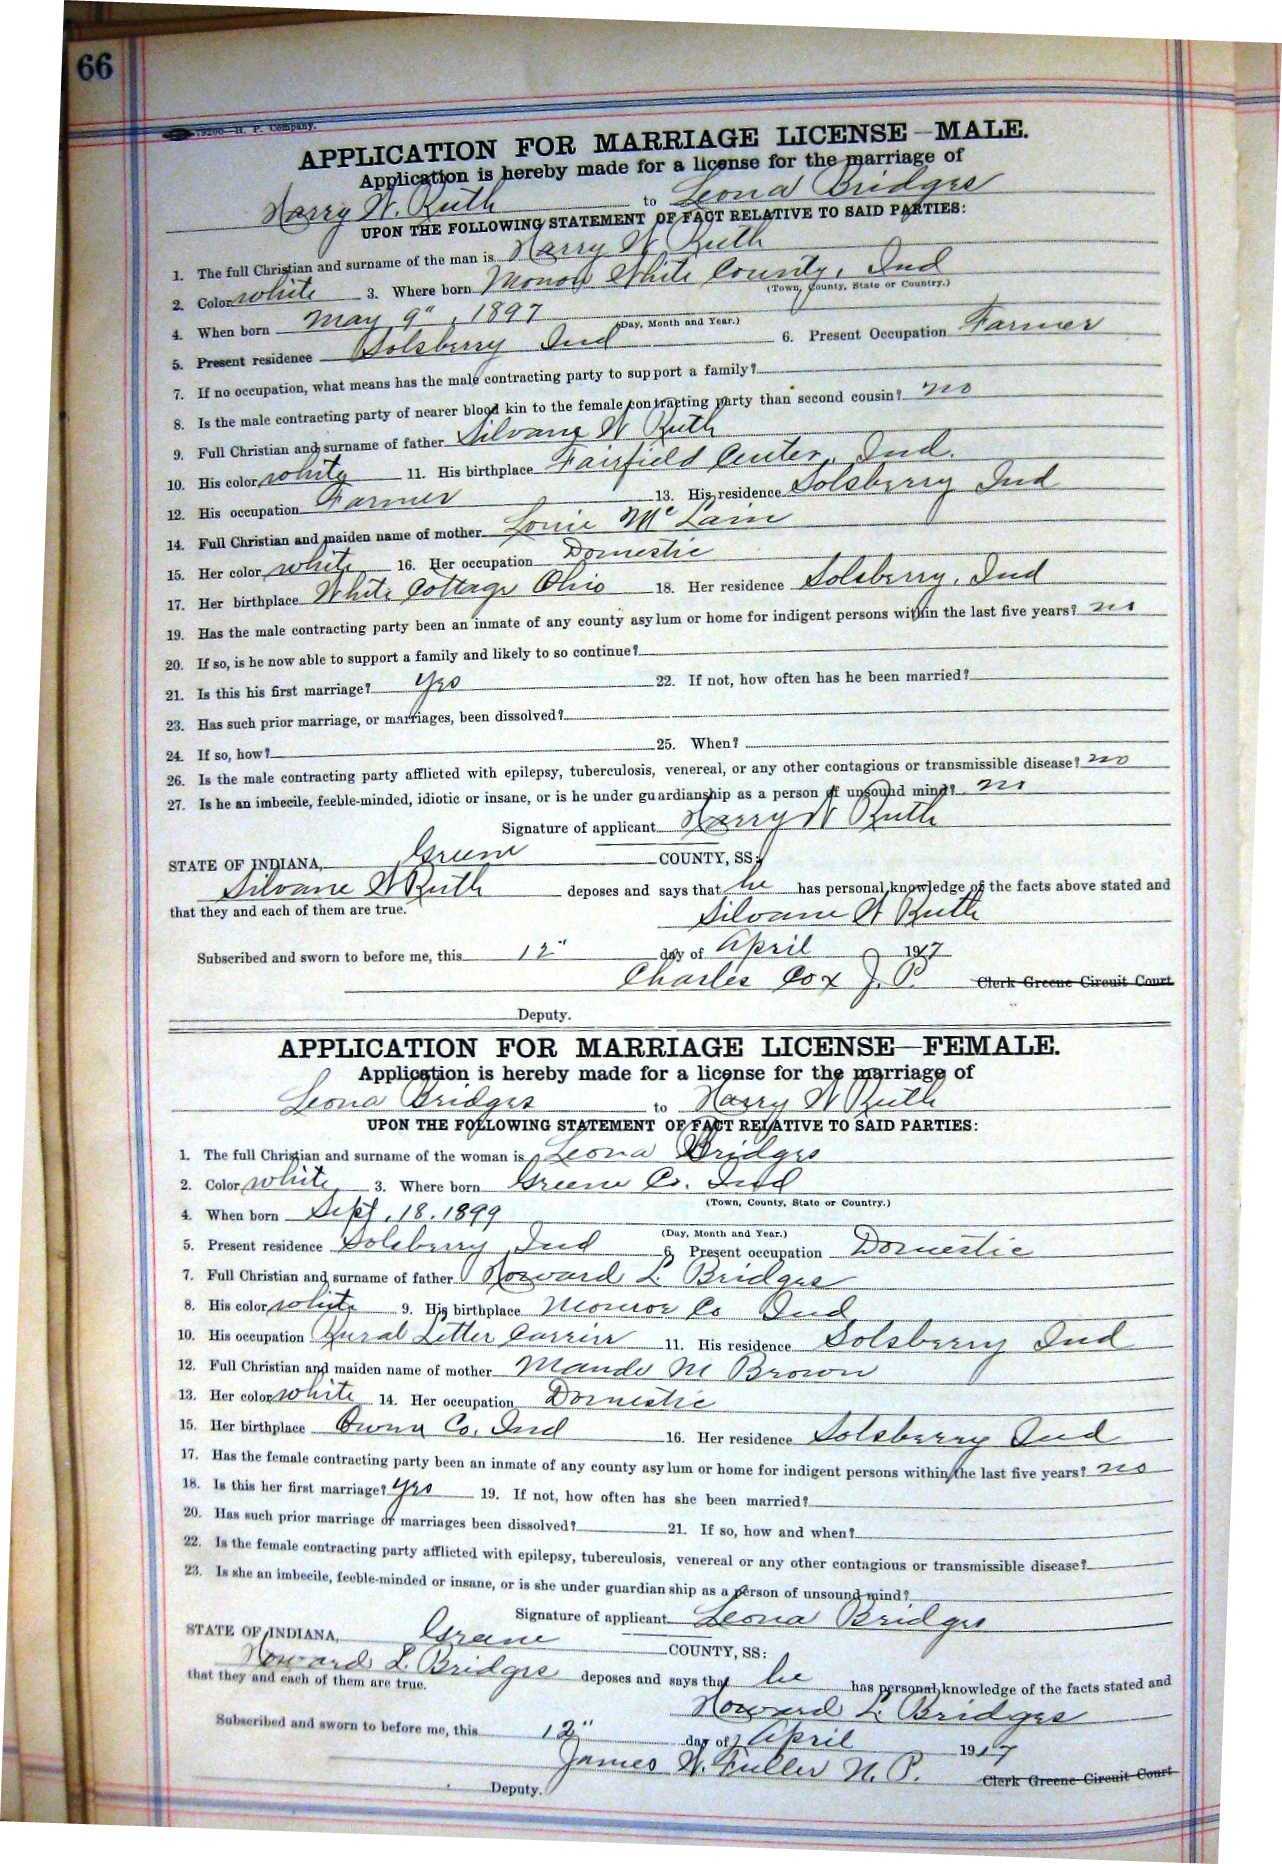 66
79200—H. P. Company.
APPLICATION FOR MARRIAGE LICENSE—MALE.
Application is hereby made for a license for the marriage of
Harry W. Ruth to Leona Bridges
UPON THE FOLLOWING STATEMENT OF FACT RELATIVE TO SAID PARTIES:
1. The full Christian and surname of the man is Harry W Ruth
2. Color white 3. Where born Monon White County, Ind
(Town, County, State or Country.)
4. When born May 9", 1897
(Day, Month and Year.)
5. Present residence Solsberry Ind 6. Present Occupation Farmer
7. If no occupation, what means has the male contracting party to support a family?
8. Is the male contracting party of nearer blood kin to the female contracting party than second cousin? no
9. Full Christian and surname of father Silvane W Ruth
10. His color white 11. His birthplace Fairfield Center, Ind.
12. His occupation Farmer 13. His residence Solsberry Ind
14. Full Christian and maiden name of mother McLain
15. Her color white 16. Her occupation Domestic
17. Her birthplace White Cottage Ohio 18. Her residence Solsberry, Ind
19. Has the male contracting party been an inmate of any county asylum or home for indigent persons within the last five years? no
20. If so, is he now able to support a family and likely to so continue?
21. Is this his first marriage? Yes 22. If not, how often has he been married?
23. Has such prior marriage, or marriages, been dissolved?
24. If so, how? 25. When?
26. Is the male contracting party afflicted with epilepsy, tuberculosis, venereal, or any other contagious or transmissible disease? no
27. Is he an imbecile, feeble-minded, idiotic or insane, or is he under guardianship as a person of unsound mind? no
Signature of applicant Harry W Ruth
STATE OF INDIANA, Greene COUNTY, SS:
Silvane W Ruth deposes and says that he has personal knowledge of the facts above stated and
that they and each of them are true.
Silvane W Ruth
Subscribed and sworn to before me, this 12" day of April 1917
Charles Cox J. P. Clerk Greene Circuit Court
Deputy.
APPLICATION FOR MARRIAGE LICENSE—FEMALE.
Application is hereby made for a license for the marriage of
Leona Bridges to Harry W Ruth
UPON THE FOLLOWING STATEMENT OF FACT RELATIVE TO SAID PARTIES:
1. The full Christian and surname of the woman is Leona Bridges
2. Color white 3. Where born Greene Co. Ind
(Town, County, State or Country.)
4. When born Sept. 18. 1899
(Day, Month and Year.)
5. Present residence Solsberry Ind 6. Present occupation Domestic
7. Full Christian and surname of father Howard L. Bridges
8. His color white 9. His birthplace Monroe Co Ind
10. His occupation Rural Letter Carrier 11. His residence Solsberry Ind
12. Full Christian and maiden name of mother Maude M Brown
13. Her color white 14. Her occupation Domestic
15. Her birthplace Owen Co. Ind 16. Her residence Solsberry Ind
17. Has the female contracting party been an inmate of any county asylum or home for indigent persons within the last five years? no
18. Is this her first marriage? Yes 19. If not, how often has she been married?
20. Has such prior marriage or marriages been dissolved? 21. If so, how and when?
22. Is the female contracting party afflicted with epilepsy, tuberculosis, venereal or any other contagious or transmissible disease?
23. Is she an imbecile, feeble-minded or insane, or is she under guardian ship as a person of unsound mind?
Signature of applicant Leona Bridges
STATE OF INDIANA, Greene COUNTY, SS:
Howard L. Bridges deposes and says that he has personal knowledge of the facts stated and
that they and each of them are true.
Howard L. Bridges
Subscribed and sworn to before me, this 12" day of April 1917
James W. Fuller N. P. Clerk Greene Circuit Court
Deputy.